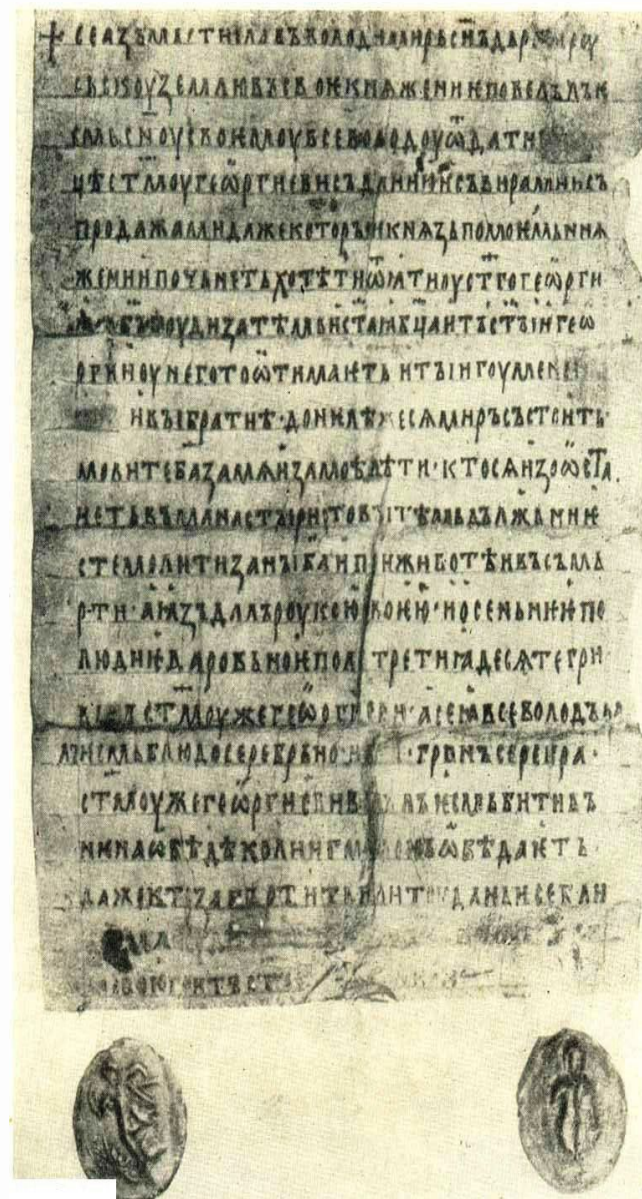 + се азъ мьстиславъ володимирь с҃нъ дьржа роу
сьскоу землю въ свок кнѧженик повелѣлъ к
смь с҃ноу свокмоу всеволодоу ѿдати
цѣ ст҃моу геѡргиеви съ данию и съ вирами и съ
продажами даже которыи кнѧзь по моемь кнѧ
жении почьнеть хотѣти ѿѧти оу ст҃го геѡрги
ꙗ а б҃ъ боуди за тѣмь и ст҃аꙗ бц҃а и тъ ст҃ыи гео
ргии оу него то ѿимаеть и ты игоумене
и вы братиѣ · донелѣже сѧ миръ състоить ·
молите б҃а за мѧ и за моѣ дѣти · кто сѧ изоѡста
неть въ манастыри то вы тѣмь дължьни ѥ
сте молити за ны б҃а и при животѣ и въ съмь
рти · а ꙗзъ далъ роукою своѥю · и осеньнеѥ по
людиѥ даровьноѥ полътретиꙗдесѧте гри
внъ ст҃моу же геѡргиеви · а се ꙗ всеволодъ да
лъ ѥсмь блюдо серебрьно · въ · л҃ · грв҃нъ серебра ·
ст҃моу же геѡргиеви велѣлъ ѥсмь бити въ
нѥ на ѡбѣдѣ коли игоуменъ ѡбѣдаѥть ·
даже кто запъртить или тоу дань и се блю